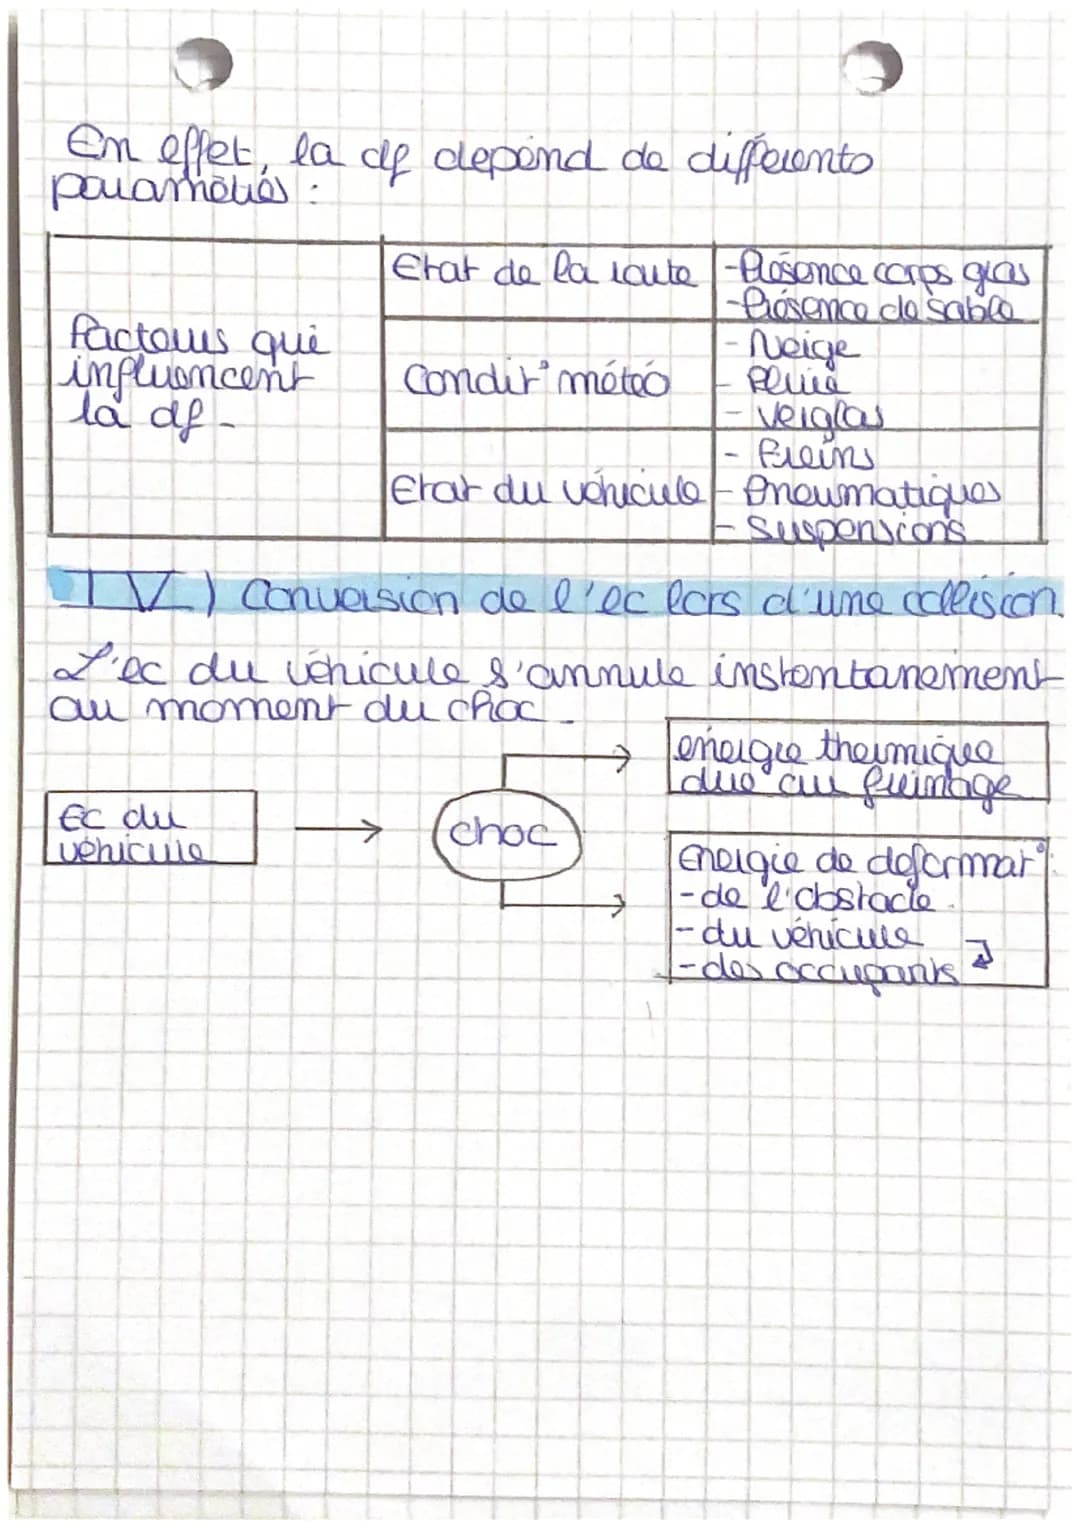 En effet, la df depend de différents
paramètres :
Facteurs qui
influencent
la df.
Etat de la route
-Présence corps gras
-Présence de sable
Condit° météo
- Neige
- Pluie
- Verglas
Etat du véhicule
- Freins
- Pneumatiques
- Suspensions
IV) Conversion de l'ec lors d'une collision.
L'ec du véhicule s'annule instentanement
au moment du choc.
Ec du
véhicule
choc
energie thermique
due au freinage
Energie de deformat° :
-de l'obstacle.
-du véhicule
-des occupants